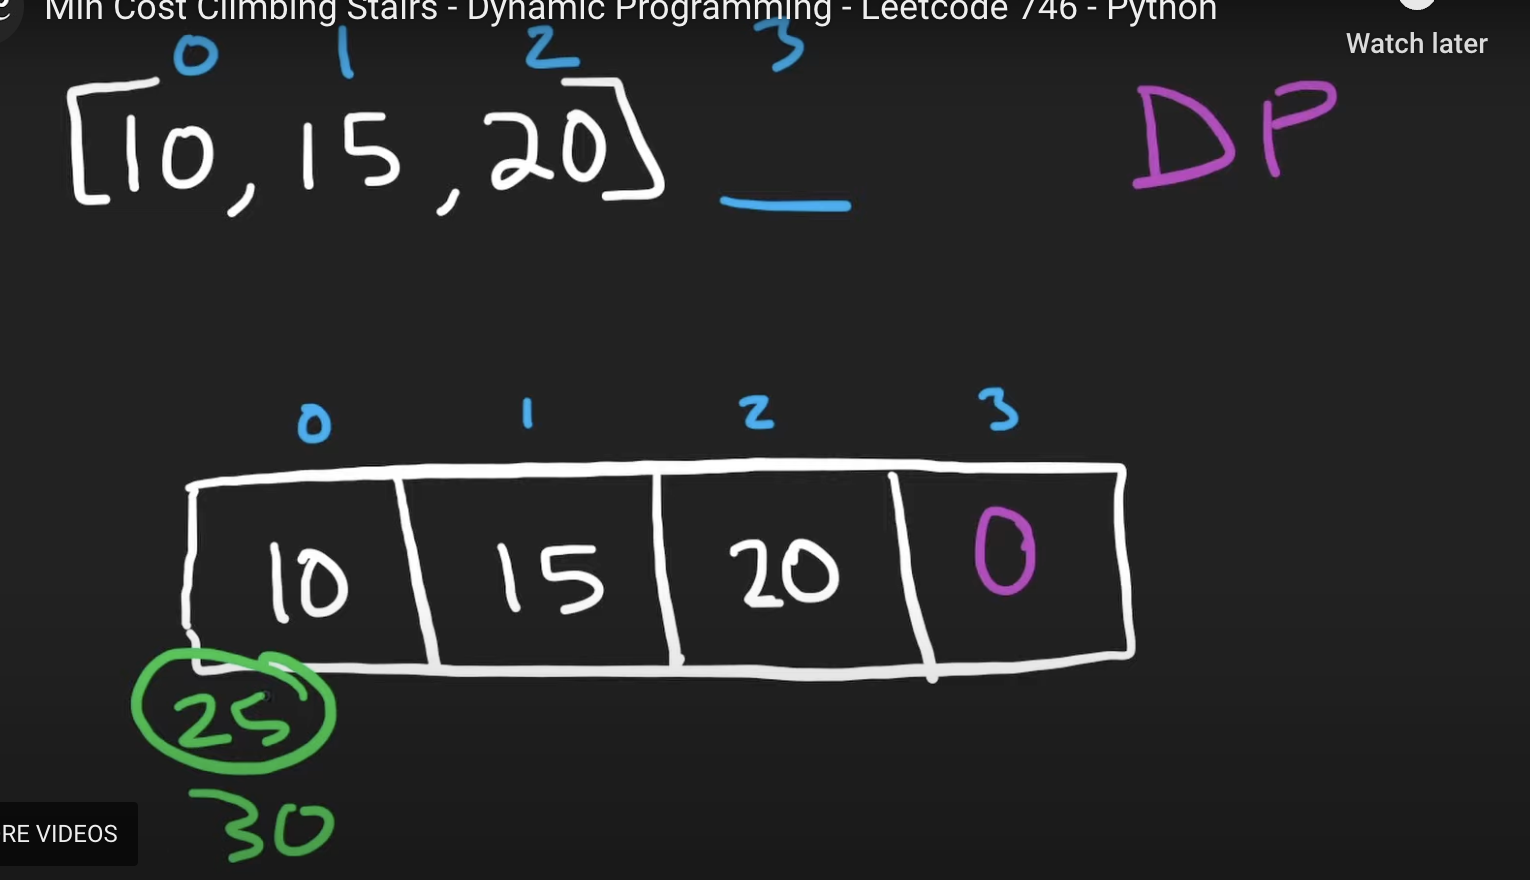 Min Cost Climbing Stairs - Dynamic Programming - Leetcode 746 - Python
Watch later
0 1 2 3
[10, 15, 20] __
DP
0 1 2 3
10 15 20 0
25
30
RE VIDEOS